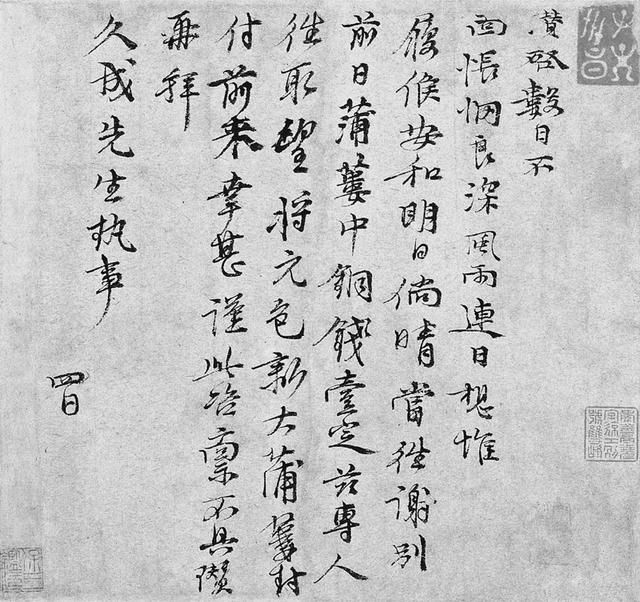 瓚啓數日不
面悵惘良深風雨連日想惟
履候安和明日倘晴當往謝别
前日蒲蔞中銅錢壹定茲專人
往取望將元色新大蒲蔞封
付前来幸甚謹此咨禀不具瓚
再拜
久成先生執事
四日